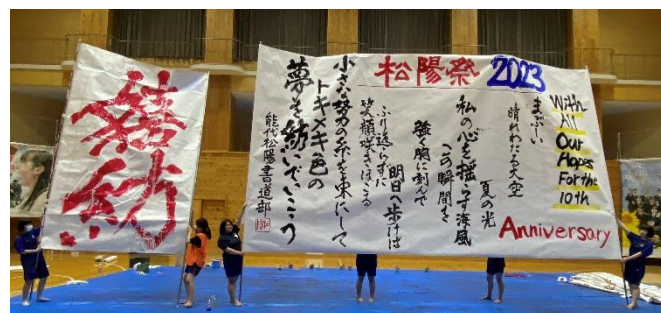 結紡
松陽祭 2023
With
All
Our
Hopes
For the
10th
Anniversary
まぶしい
晴れわたる大空
夏の光
私の心を揺らす海風
この瞬間を
強く胸に刻んで
明日へ歩けば
ふり返らずに
笑顔咲きほこる
小さな努力の糸を束にして
トキメキ色の
夢を紡いでいこう
能代松陽書道部